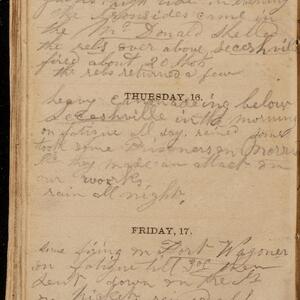 the Ironsides came in
the McDonald shelled
the rebs over above Seceshville
fired about 20 shots
the rebs returned a few
THURSDAY, 16.
heavy cannonading below
Seceshville in the morning
on fatigue all day. rained some
took some prisoners on Morris
they made an attack on
our works
rain all night.
FRIDAY, 17.
some firing on Fort Wagoner
on fatigue till then
went down on the